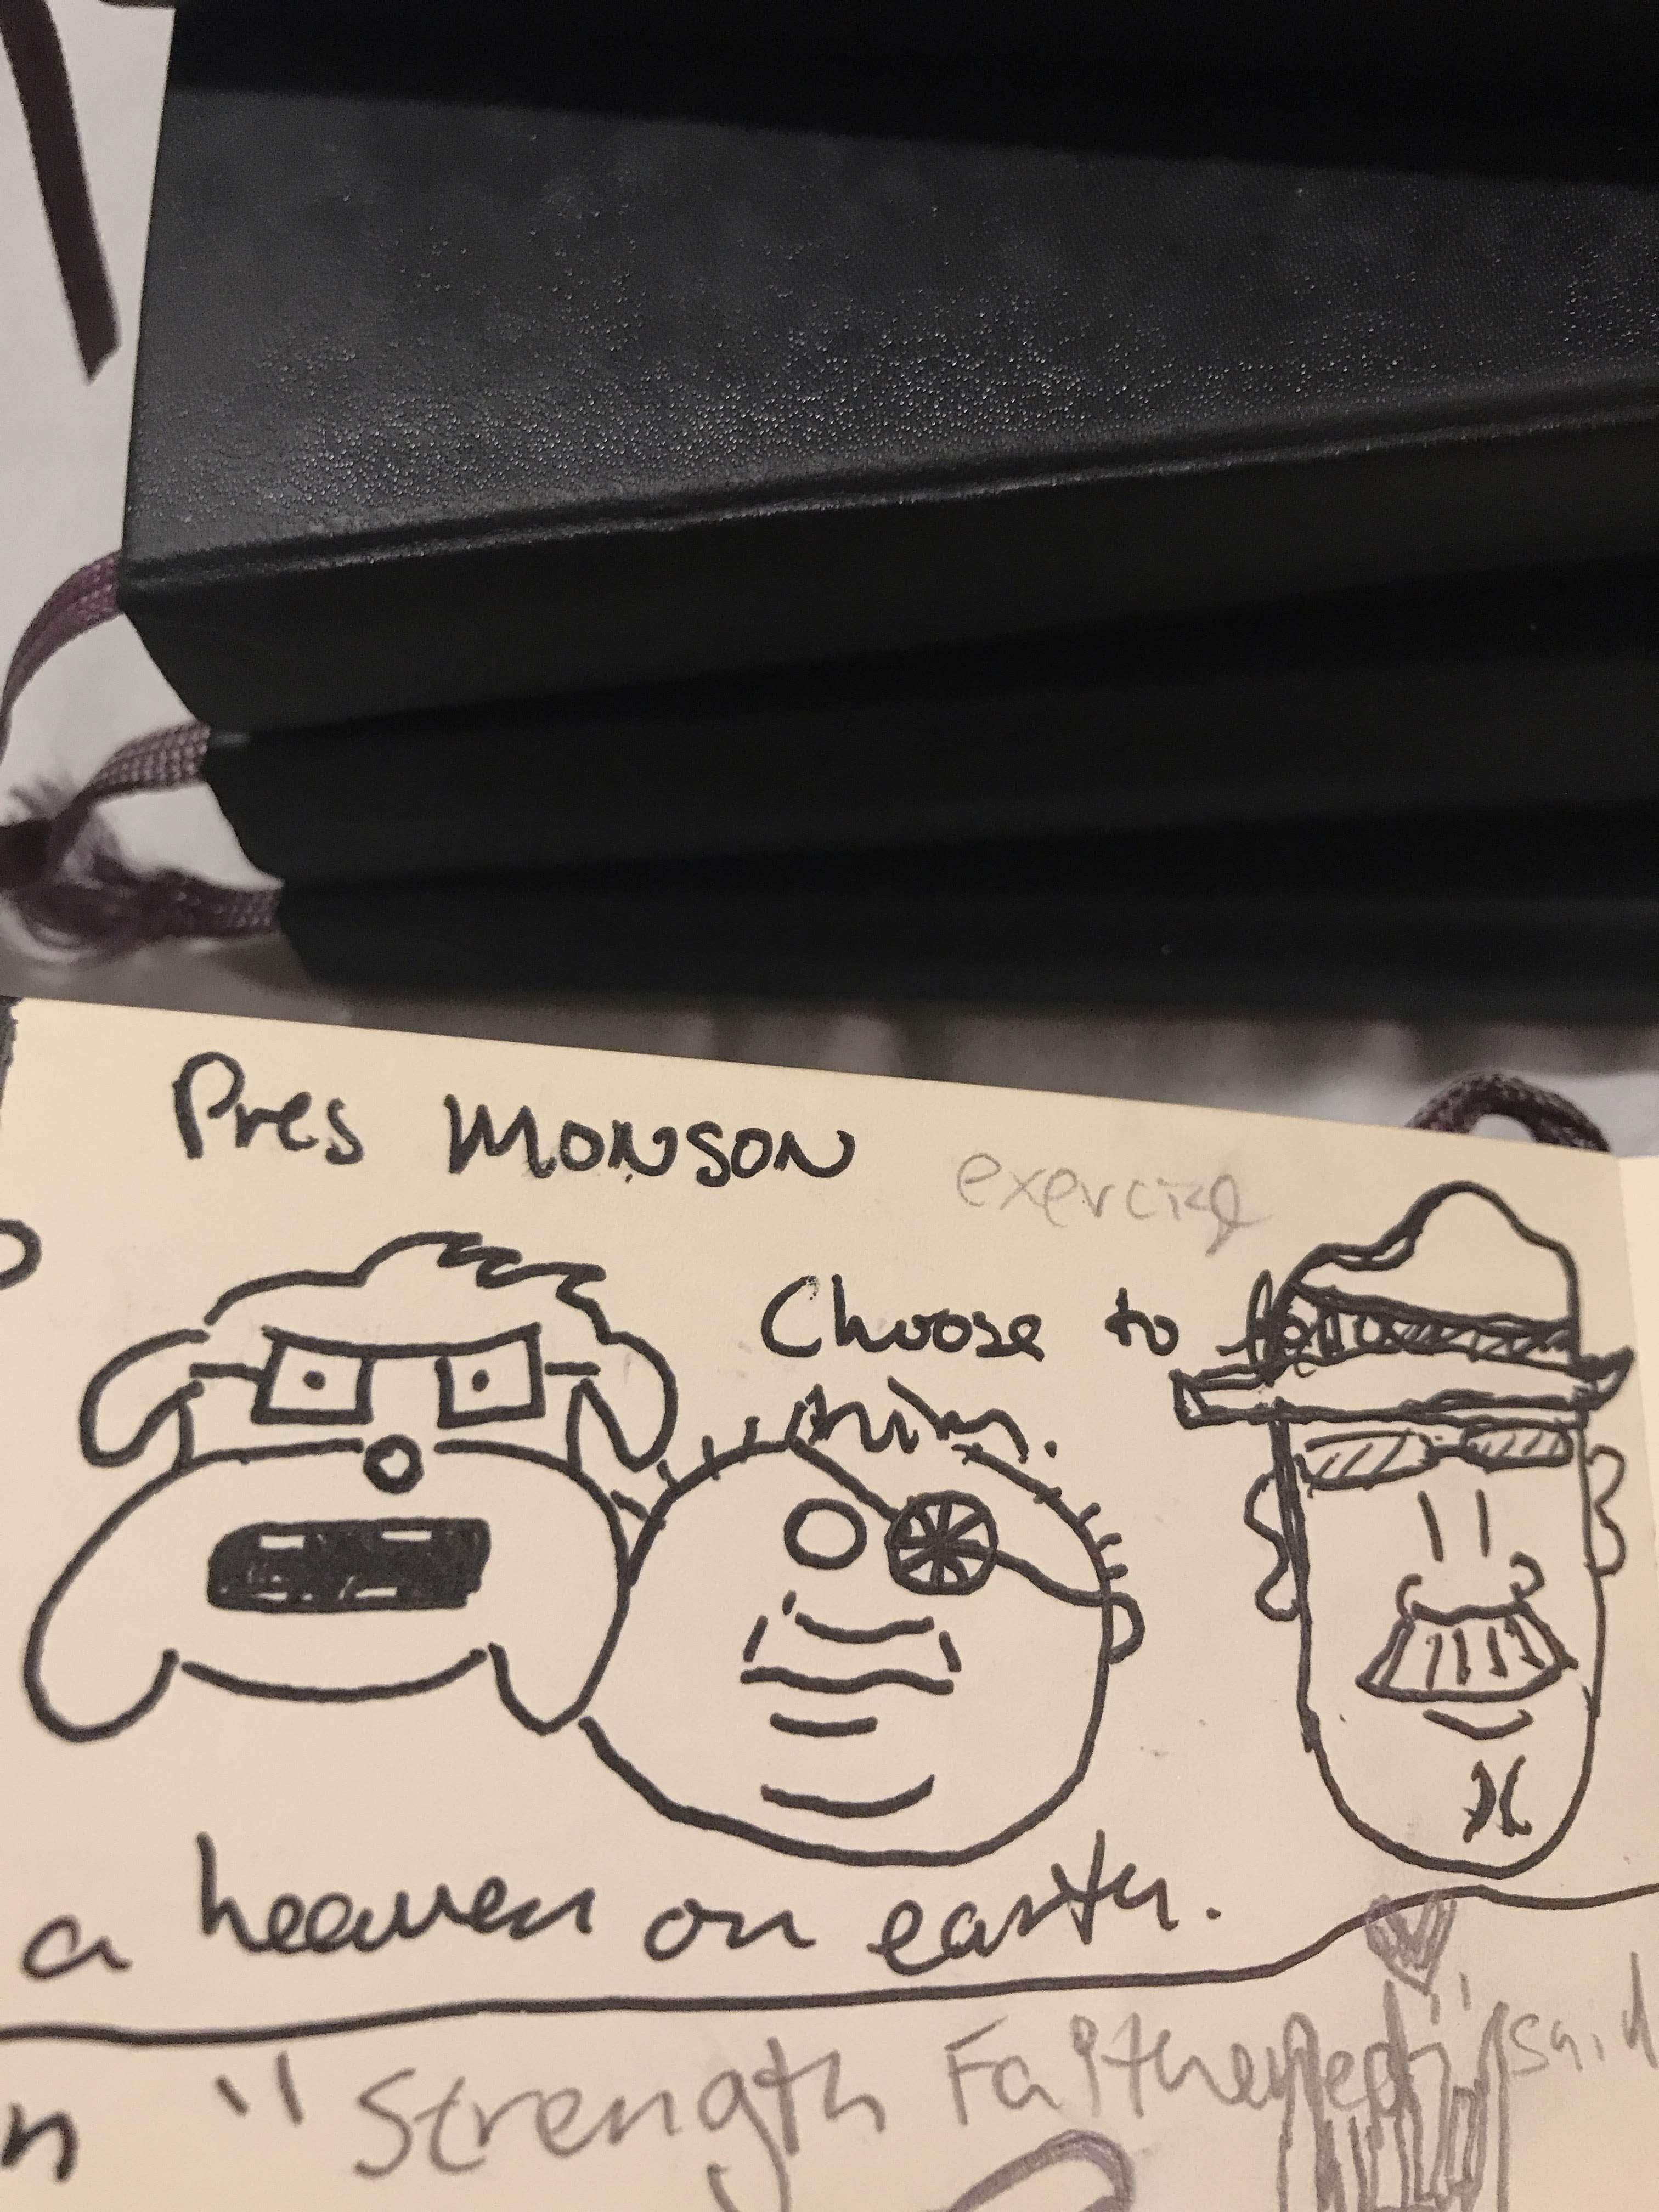 Pres Monson
exercise
Choose to follow
him.
a heaven on earth.
n "Strength Faithened" said